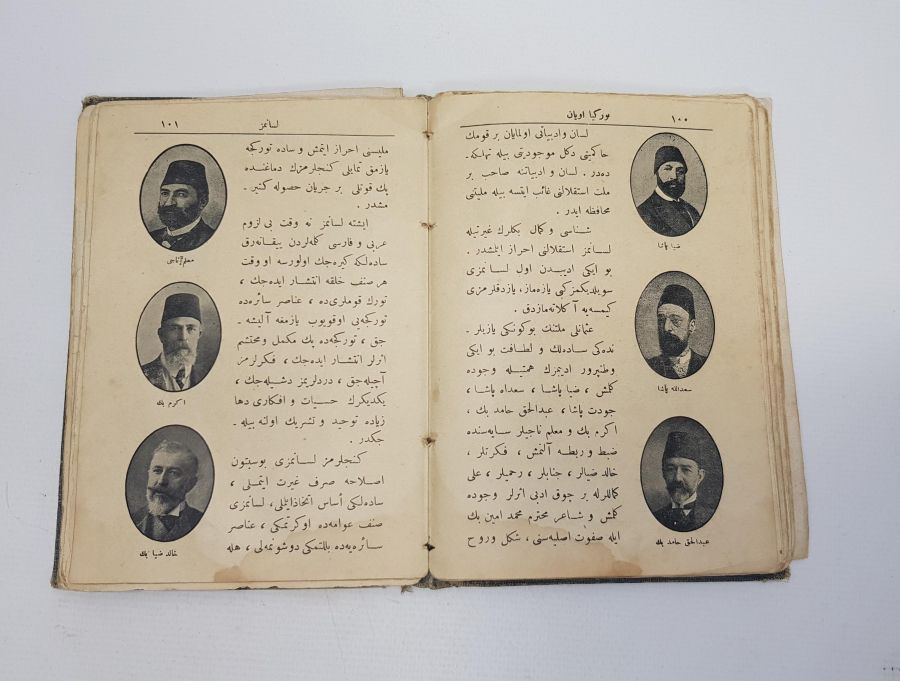 ١٠٠
لسان و ادبیاتی اولمایان بر قومك
حاکمیتی دکل موجودیتی بیله تهلکه‌ـ
ده‌در . لسان و ادبیاتنه صاحب بر
ملت استقلالنی غائب ایتسه بیله ملیتنی
محافظه ایدر .
شناسی و کمال بکلرك غیرتیله
لسانمز استقلالنی احراز ایلشدر .
بو ایکی ادیبدن اول لسانمزی
سویلدیکمز کبی یازه‌ماز، یازدقلرمزی
کیمسه‌یه آکلاته‌مازدق .
عثمانلی ملتنك بوکونکی یازیلرـ
نده‌کی ساده‌لك و لطافت بو ایکی
وطنپرور ادیبمزك همتیله وجوده
کلمش ، ضیا پاشا ، سعدالله پاشا ،
جودت پاشا ، عبدالحق حامد بك ،
اکرم بك و معلم ناجیلر سایه‌سنده
ضبط و ربطه آلنمش ، فکرتلر ،
خالد ضیالر ، جنابلر ، رحمیلر ، علی
کماللرله بر چوق ادبی اثرلر وجوده
کلمش و شاعر محترم محمد امین بك
ایله صفوت اصلیه‌سنی ، شکل و روح
ضیا پاشا
سعدالله پاشا
عبدالحق حامد بك
لسانمز
١٠١
ملیسنی احراز ایتمش و ساده تورکجه
یازمق تمایلی کنجلرمزك دماغنده
پك قوتلی بر جریان حصوله کتیرـ
مشدر .
ایشته لسانمز نه وقت بی لزوم
عربی و فارسی کلمه‌لردن ییقانه‌رق
ساده‌لکه کیره‌جك اولورسه او وقت
هر صنف خلقه انتشار ایده‌جك ،
تورك قوملری‌ده ، عناصر سائره‌ده
تورکجه‌یی اوقویوب یازمغه آلیشه‌ـ
جق ، تورکجه‌ده پك مکمل و محتشم
اثرلر انتشار ایده‌جك ، فکرلرمز
آچیله‌جق ، دردلریمز دشیله‌جك ،
یکدیکرك حسیات و افکاری دها
زیاده توحید و تشریك اولنه بیله‌ـ
جکدر .
کنجلرمز لسانمزی بوسبتون
اصلاحه صرف غیرت ایتملی ،
ساده‌لکی أساس اتخاذ ایلملی ، لسانمزی
صنف عوامه‌ده اوکرتمکی ، عناصر
سائره‌یه‌ده بللتمکی دوشونمه‌لی ، هله
معلم ناجی
اکرم بك
خالد ضیا بك